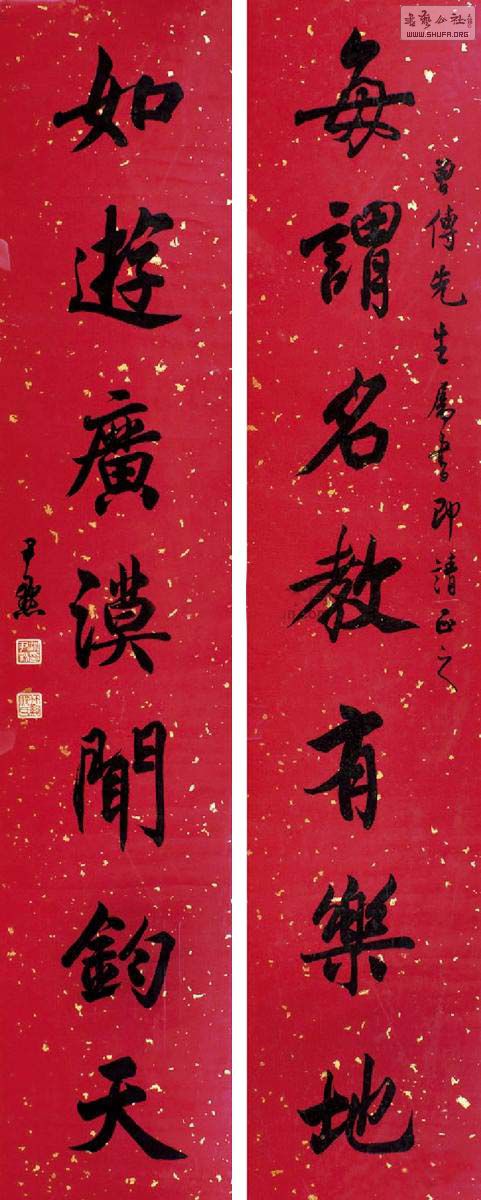 書藝公社
WWW.SHUFA.ORG
曾傳先生屬書即請正之
每謂名教有樂地
如遊廣漠聞鈞天
尹默